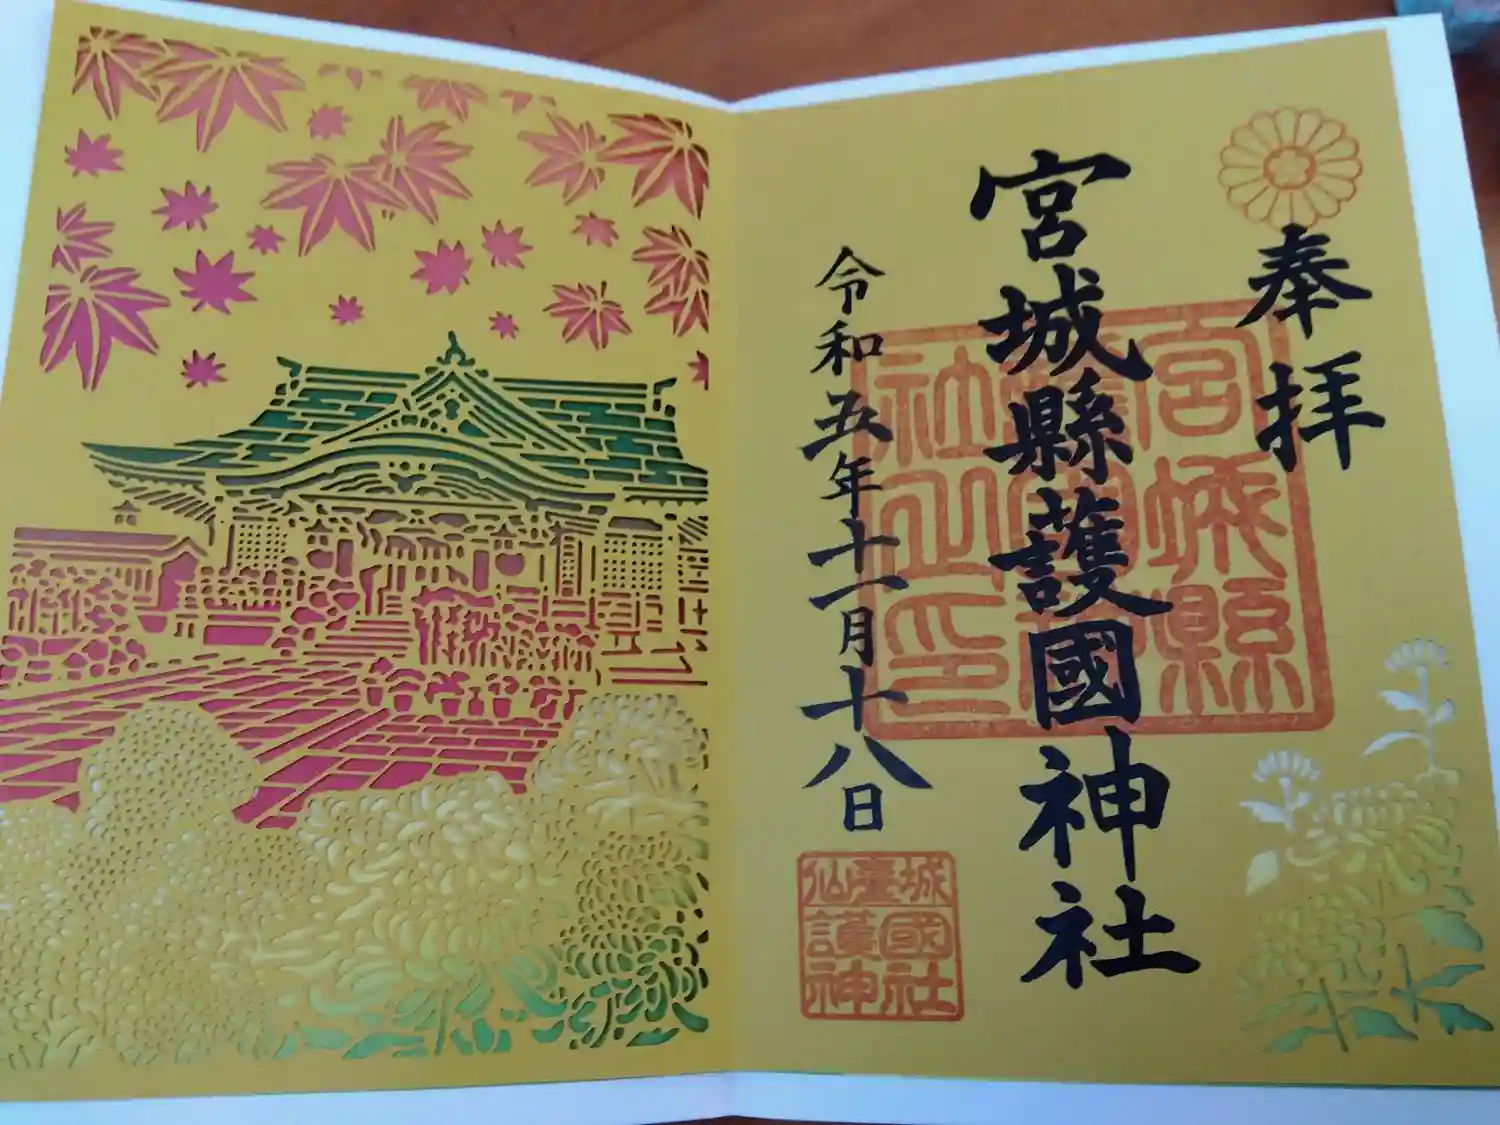 奉拝
宮城縣護國神社
令和五年十一月十八日
宮城縣
社之印
仙臺城
護國
神社